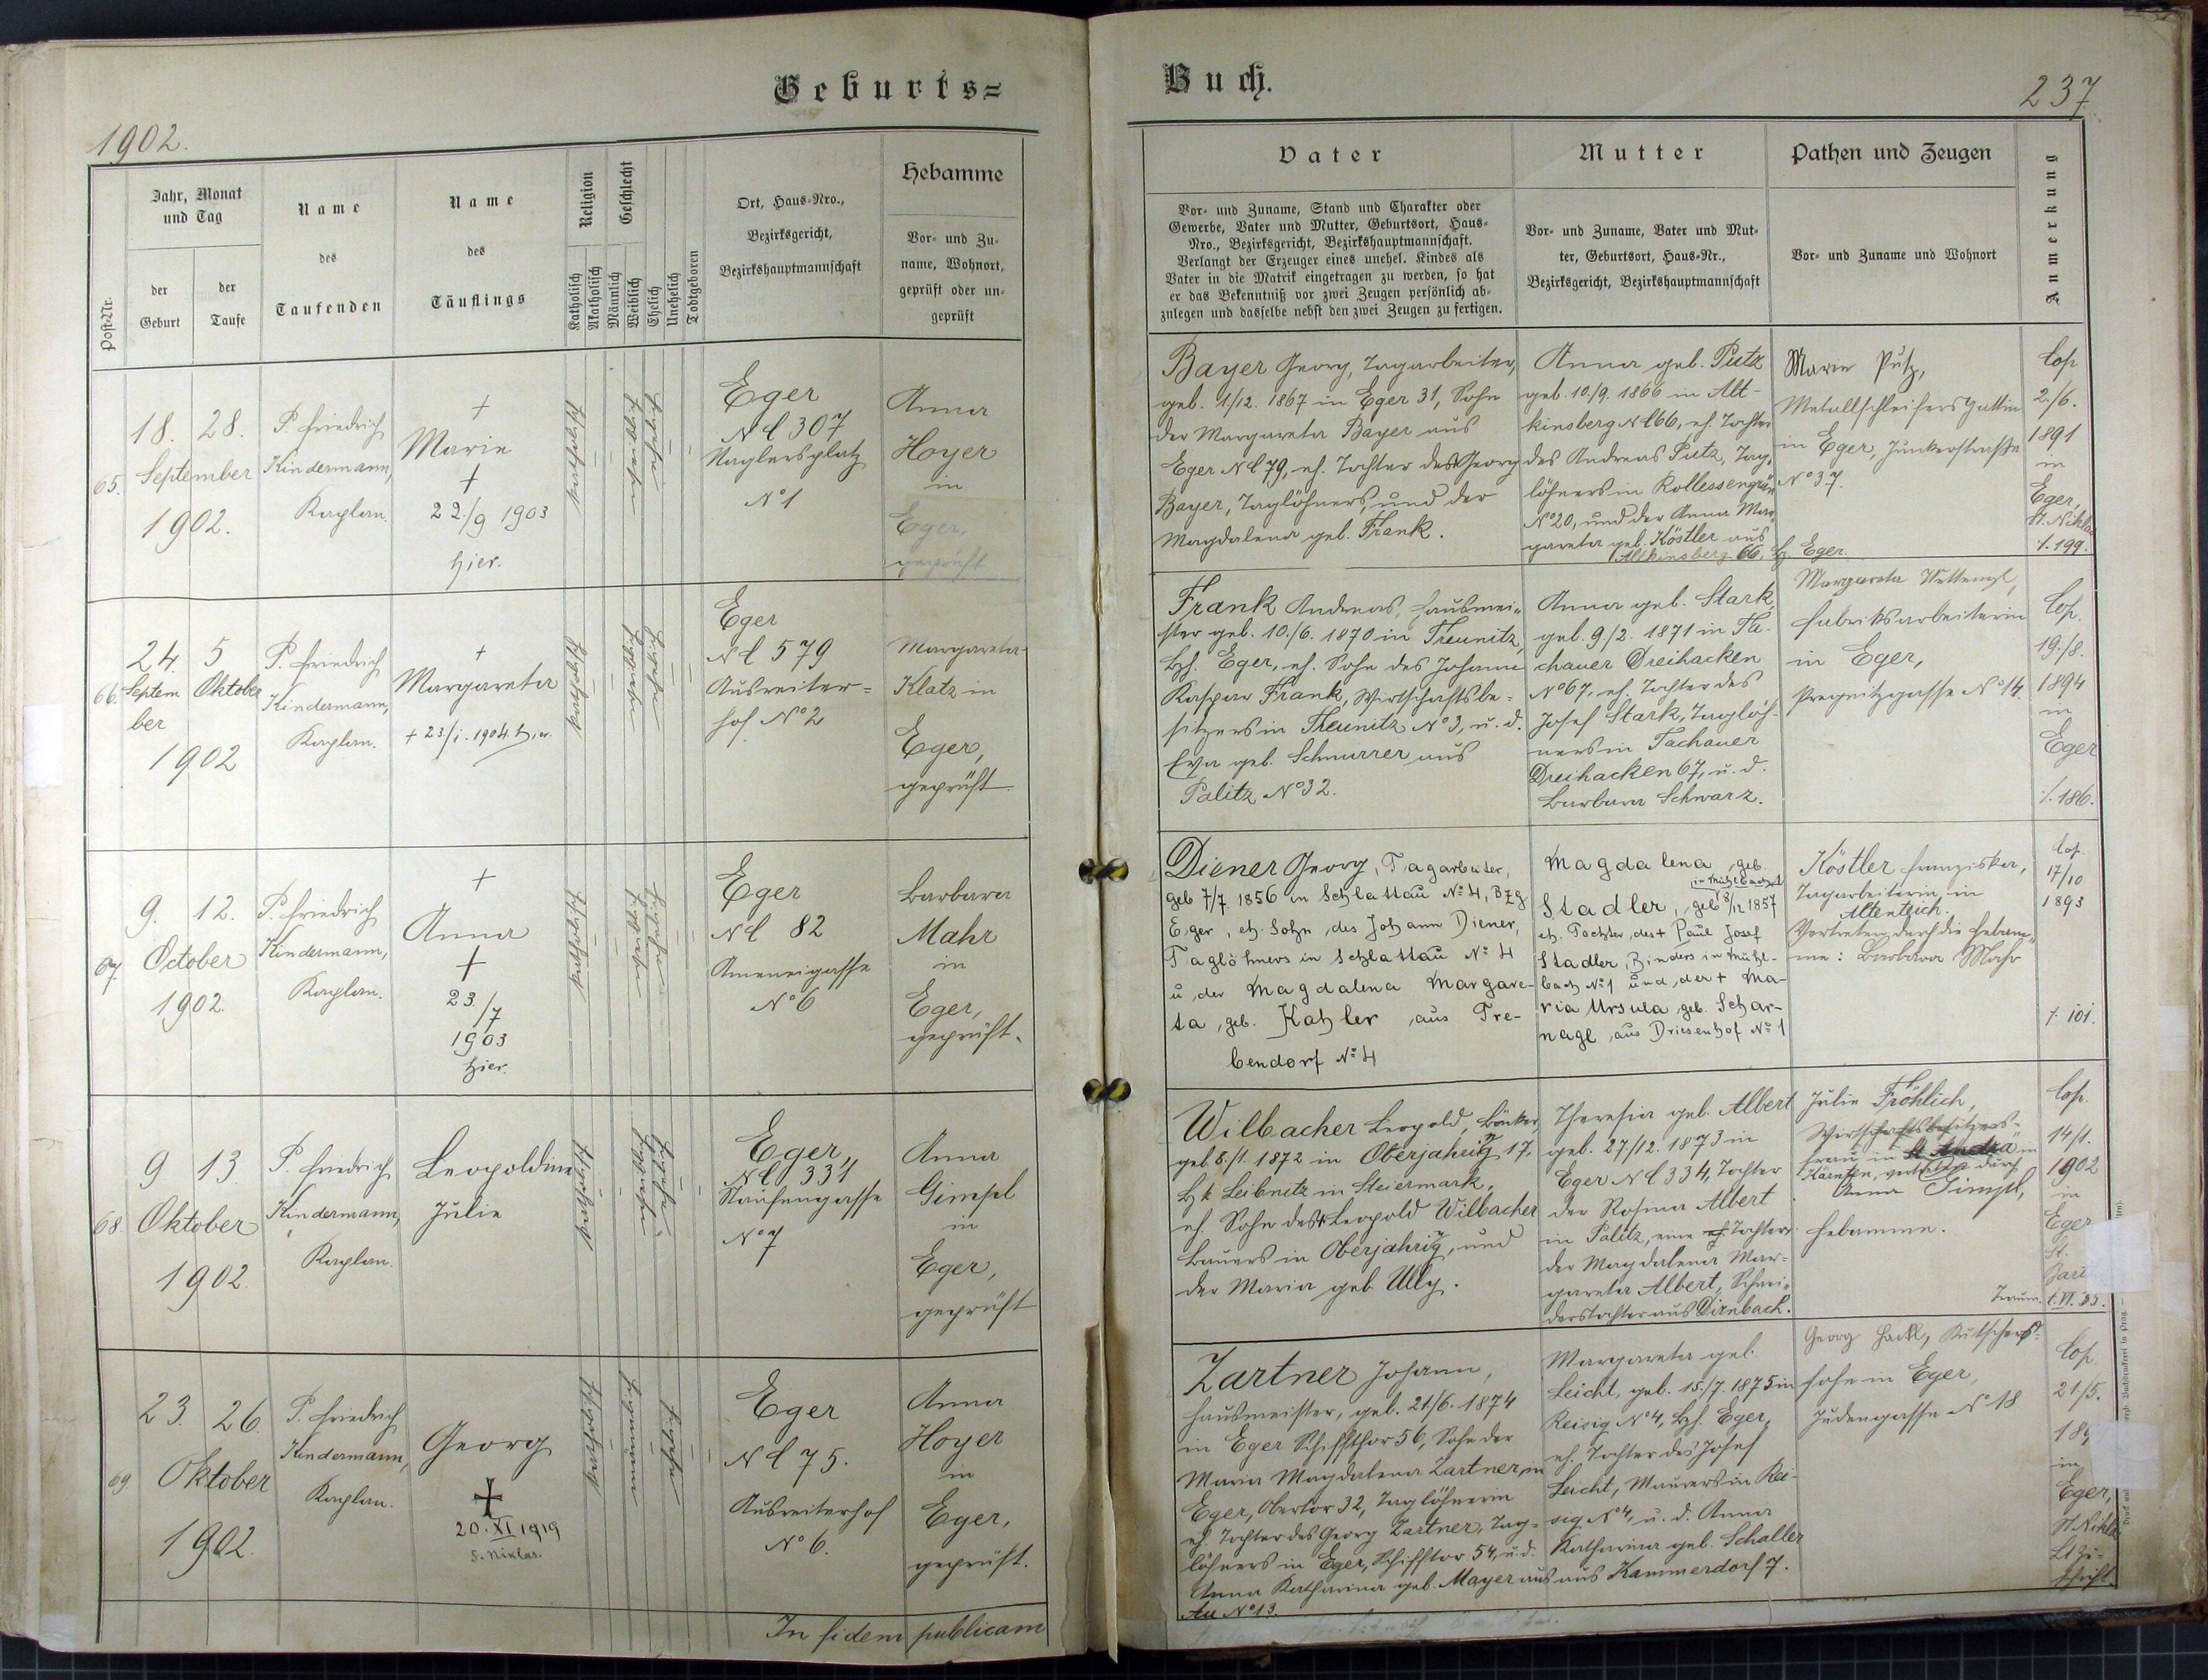 Geburts=
1902.
Post-Nr.
Jahr, Monat
und Tag
der
Geburt
der
Taufe
Name
des
Taufenden
Name
des
Täuflings
Religion
Katholisch
Akatholisch
Geschlecht
Männlich
Weiblich
Ehelich
Unehelich
Todtgeboren
Ort, Haus-Nro.,
Bezirksgericht,
Bezirkshauptmannschaft
Hebamme
Vor- und Zu-
name, Wohnort,
geprüft oder un-
geprüft
65.
18. 28.
September
1902.
P. Friedrich
Kindermann,
Kaplan.
+
Marie
+
22./9 1903
hier.
Eger
N C 307
Naglersplatz
N° 1
Anna
Hoyer
in
Eger,
geprüft
66.
24. 5
Septem Oktober
ber
1902
P. Friedrich
Kindermann,
Kaplan.
+
Margareta
+ 23/1. 1904. hier.
Eger
N C 579
Ausreiter=
hof N° 2
Margareta
Klatz in
Eger,
geprüft.
67.
9. 12.
October
1902.
P. Friedrich
Kindermann,
Kaplan.
+
Anna
+
23./7
1903
hier.
Eger
N C 82
Ameneigasse
N° 6
Barbara
Mahr
in
Eger,
geprüft.
68.
9 13.
Oktober
1902.
P. Friedrich
Kindermann,
Kaplan.
Leopoldine
Julie
Eger,
N C 331
Staufengasse
N° 7
Anna
Gimpl
in
Eger,
geprüft
69
23. 26.
Oktober
1902.
P. Friedrich
Kindermann,
Kaplan.
Georg
+
20. XI 1919
S. Niklas.
Eger
N C 75.
Ausreiterhof
N° 6.
Anna
Hoyer
in
Eger,
geprüft.
In fidem publicam
Buch.
237
Vater
Vor- und Zuname, Stand und Charakter oder
Gewerbe, Vater und Mutter, Geburtsort, Haus-
Nro., Bezirksgericht, Bezirkshauptmannschaft.
Verlangt der Erzeuger eines unehel. Kindes als
Vater in die Matrik eingetragen zu werden, so hat
er das Bekenntniß vor zwei Zeugen persönlich ab-
zulegen und dasselbe nebst den zwei Zeugen zu fertigen.
Mutter
Vor- und Zuname, Vater und Mut-
ter, Geburtsort, Haus-Nr.,
Bezirksgericht, Bezirkshauptmannschaft
Pathen und Zeugen
Vor- und Zuname und Wohnort
Anmerkung
Bayer Georg, Tagarbeiter,
geb. 1/12. 1867 in Eger 31, Sohn
der Margareta Bayer aus
Eger N C 79, eh. Tochter des Georg
Bayer, Taglöhners, und der
Magdalena geb. Frank.
Anna geb. Putz
geb. 10/9. 1866 in Alt-
kinsberg N C 66, eh. Tochter
des Andreas Putz, Tag-
löhners in Kollessengrün
N° 20, und der Anna Mar-
gareta geb. Köstler aus
Altkinsberg 66, Bz. Eger.
Marie Putz,
Metallschleifersgattin
in Eger, Junkerstraße
N° 37.
Cop
2./6.
1891
in
Eger,
St. Nikla
f. 199.
Frank Andreas, Hausmei-
ster geb. 10./6. 1870 in Treunitz,
Bzh. Eger, eh. Sohn des Johann
Kaspar Frank, Wirtschaftsbe-
sitzers in Treunitz N° 3, u. d.
Eva geb. Schnurrer aus
Palitz N° 32.
Anna geb. Stark,
geb. 9/2. 1871 in Ta-
chauer Dreihacken
N° 67, eh. Tochter des
Josef Stark, Taglöh-
ners in Tachauer
Dreihacken 67, u. d.
Barbara Schwarz.
Margareta Wettengl,
Fabriksarbeiterin
in Eger,
Pregnitzgasse N° 14
Cop.
19./8.
1894
in
Eger
f. 186.
Diener Georg, Tagarbeiter,
geb 7/7. 1856 in Schlattau N° 4, Bzg
Eger, eh. Sohn des Johann Diener,
Taglöhners in Schlattau N° 4
u. der Magdalena Margare-
ta, geb. Kahler, aus Tre-
bendorf N° 4
Magdalena, geb.
in Mühlbach 1
Stadler, geb 8/12 1857
eh. Tochter, des + Paul Josef
Stadler, Binders in Mühl-
bach N° 1 und, der + Ma-
ria Ursula, geb. Schar-
nagl, aus Driesenhof N° 1
Köstler Franziska,
Tagarbeiterin in
Altenteich.
Vertreten durch die Hebam-
me: Barbara Mahr
Cop.
17/10
1893
f. 101.
Wilbacher Leopold, Bäcker
geb. 8./1. 1872 in Oberjahring 17,
Bzk. Leibnitz in Steiermark,
eh. Sohn des + Leopold Wilbacher
Bauers in Oberjahring, und
der Maria geb. Ully.
Theresia geb. Albert
geb. 27/12. 1873 in
Eger N C 334, Tochter
der Rosina Albert
in Palitz, eine eh. Tochter
der Magdalena Mar-
gareta Albert, Schnei-
derstochter aus Dirnbach.
Julie Fröhlich,
Wirtschaftsbesitzers-
frau in St. Andrä in
Kärnten, vertreten durch
Anna Gimpl,
Hebamme.
Cop.
14/1.
1902
in
Eger
St.
Traum. t. VI. 85.
Zartner Johann,
Hausmeister, geb. 21/6. 1874
in Eger Schiffthor 56, Sohn der
Maria Magdalena Zartner, in
Eger, Obertor 32, Taglöhnerin
eh. Tochter des Georg Zartner, Tag-
löhners in Eger, Schifftor 54, u. d.
Anna Katharina geb. Mayer aus
Au N° 13.
Margareta geb.
Leicht, geb. 15./7. 1875 in
Reisig N° 4, Bzh. Eger,
eh. Tochter des Josef
Leicht, Maurers in Rei-
sig N° 4, u. d. Anna
Katharina geb. Schaller
aus Kammerdorf 7.
Georg Hackl, Kutschers-
sohn in Eger,
Judengasse N° 18
Cop.
21/5.
in
Eger,
St. Nikla